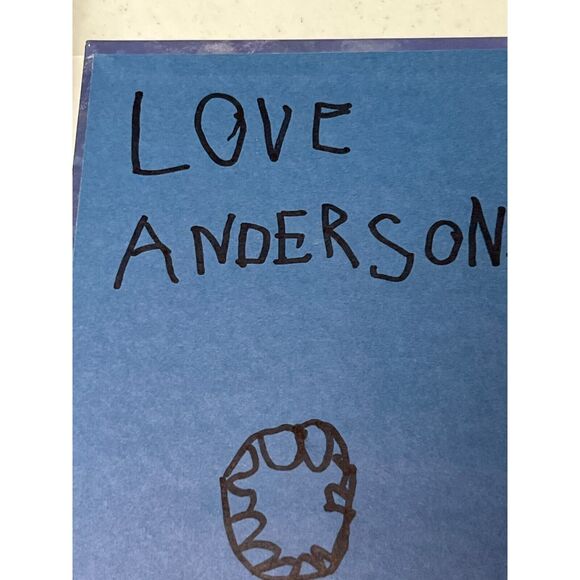 LOVE
ANDERSON.